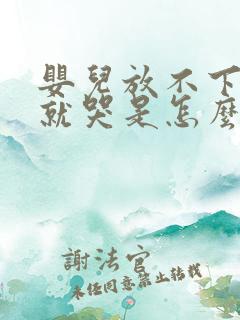 嬰兒放不下
就哭是怎麼
謝法官
未经同意禁止转载